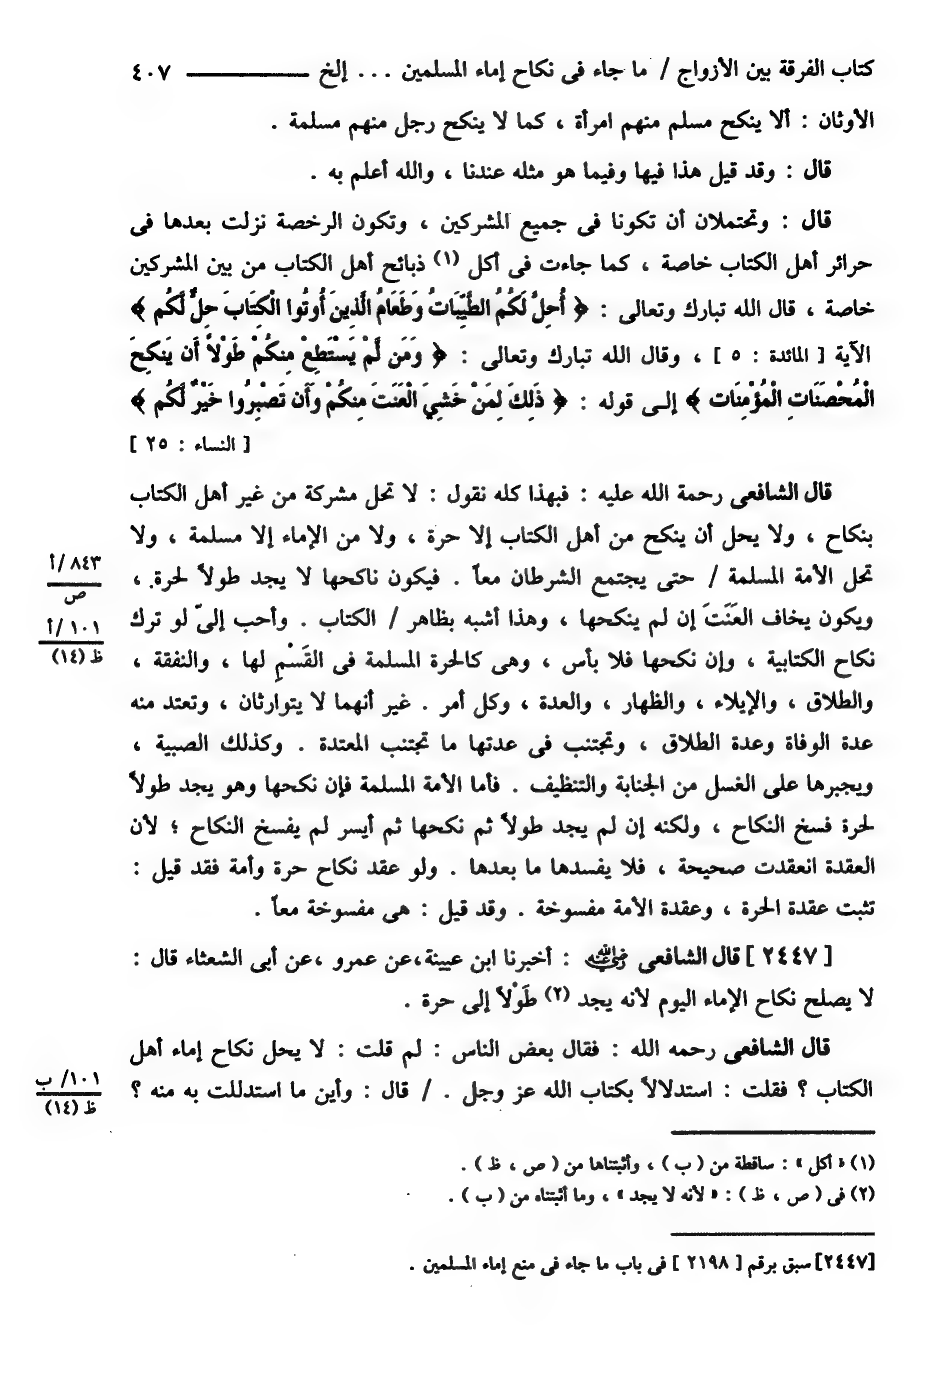 كتاب الفرقة بين الأزواج / ما جاء فى نكاح إماء المسلمين ... إلخ ــــــــــ ٤٠٧
الأوثان : ألا ينكح مسلم منهم امرأة ، كما لا ينكح رجل منهم مسلمة .
قال : وقد قيل هذا فيها وفيما هو مثله عندنا ، والله أعلم به .
قال : وتحتملان أن تكونا فى جميع المشركين ، وتكون الرخصة نزلت بعدها فى
حرائر أهل الكتاب خاصة ، كما جاءت فى أكل (١) ذبائح أهل الكتاب من بين المشركين
خاصة ، قال الله تبارك وتعالى : ﴿ أُحِلَّ لَكُمُ الطَّيِّبَاتُ وَطَعَامُ الَّذِينَ أُوتُوا الْكِتَابَ حِلٌّ لَّكُمْ ﴾
الآية [ المائدة : ٥ ] ، وقال الله تبارك وتعالى : ﴿ وَمَن لَّمْ يَسْتَطِعْ مِنكُمْ طَوْلاً أَن يَنكِحَ
الْمُحْصَنَاتِ الْمُؤْمِنَاتِ ﴾ إلى قوله : ﴿ ذَلِكَ لِمَنْ خَشِيَ الْعَنَتَ مِنكُمْ وَأَن تَصْبِرُوا خَيْرٌ لَّكُمْ ﴾
[ النساء : ٢٥ ]
قال الشافعى رحمة الله عليه : فبهذا كله نقول : لا تحل مشركة من غير أهل الكتاب
بنكاح ، ولا يحل أن ينكح من أهل الكتاب إلا حرة ، ولا من الإماء إلا مسلمة ، ولا
تحل الأمة المسلمة / حتى يجتمع الشرطان معاً . فيكون ناكحها لا يجد طولاً لحرة ،
٨٤٣/أ
ص
ويكون يخاف العَنَتَ إن لم ينكحها ، وهذا أشبه بظاهر / الكتاب . وأحب إلىّ لو ترك
١٠١/أ
ظ (١٤)
نكاح الكتابية ، وإن نكحها فلا بأس ، وهى كالحرة المسلمة فى القَسْمِ لها ، والنفقة ،
والطلاق ، والإيلاء ، والظهار ، والعدة ، وكل أمر . غير أنهما لا يتوارثان ، وتعتد منه
عدة الوفاة وعدة الطلاق ، وتجتنب فى عدتها ما تجتنب المعتدة . وكذلك الصبية ،
ويجبرها على الغسل من الجنابة والتنظيف . فأما الأمة المسلمة فإن نكحها وهو يجد طولاً
لحرة فسخ النكاح ، ولكنه إن لم يجد طولاً ثم نكحها ثم أيسر لم يفسخ النكاح ؛ لأن
العقدة انعقدت صحيحة ، فلا يفسدها ما بعدها . ولو عقد نكاح حرة وأمة فقد قيل :
تثبت عقدة الحرة ، وعقدة الأمة مفسوخة . وقد قيل : هى مفسوخة معاً .
[ ٢٤٤٧ ] قال الشافعى رضي الله عنه : أخبرنا ابن عيينة ،عن عمرو ،عن أبى الشعثاء قال :
لا يصلح نكاح الإماء اليوم لأنه يجد (٢) طَوْلاً إلى حرة .
قال الشافعى رحمه الله : فقال بعض الناس : لم قلت : لا يحل نكاح إماء أهل
الكتاب ؟ فقلت : استدلالاً بكتاب الله عز وجل . / قال : وأين ما استدللت به منه ؟
١٠١/ ب
ظ (١٤)
(١) « أكل » : ساقطة من ( ب ) ، وأثبتناها من ( ص ، ظ ) .
(٢) فى ( ص ، ظ ) : « لأنه لا يجد » ، وما أثبتناه من ( ب ) .
[٢٤٤٧] سبق برقم [ ٢١٩٨ ] فى باب ما جاء فى منع إماء المسلمين .